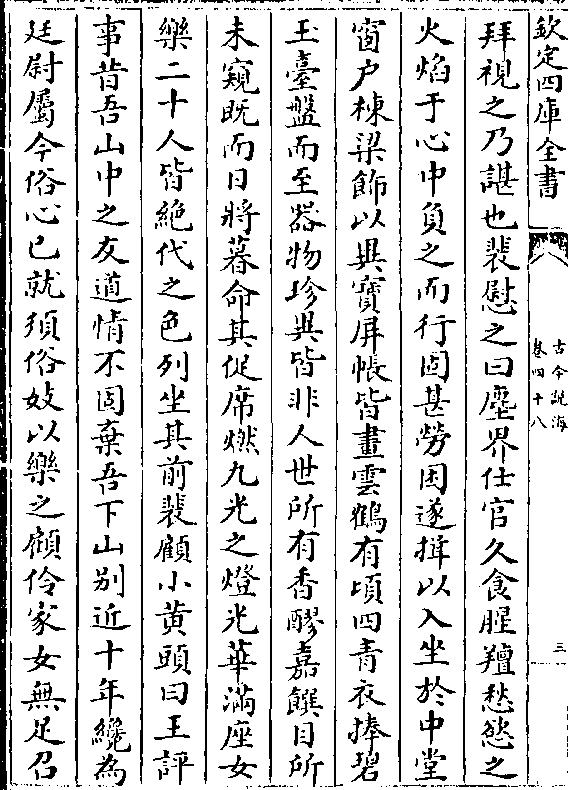 欽定四庫全書
古今說海
卷四十八
三
拜視之乃諶也裴慰之曰塵界仕官久食腥羶愁慾之
火焰于心中負之而行固甚勞困遂揖以入坐於中堂
窗户棟梁飾以異寶屏帳皆畫雲鶴有頃四青衣捧碧
玉臺盤而至器物珍異皆非人世所有香醪嘉饌目所
未窺既而日將暮命其促席燃九光之燈光華滿座女
樂二十人皆絶代之色列坐其前裴顧小黄頭曰王評
事昔吾山中之友道情不固棄吾下山别近十年纔為
廷尉屬今俗心已就須俗妓以樂之顧伶家女無足召